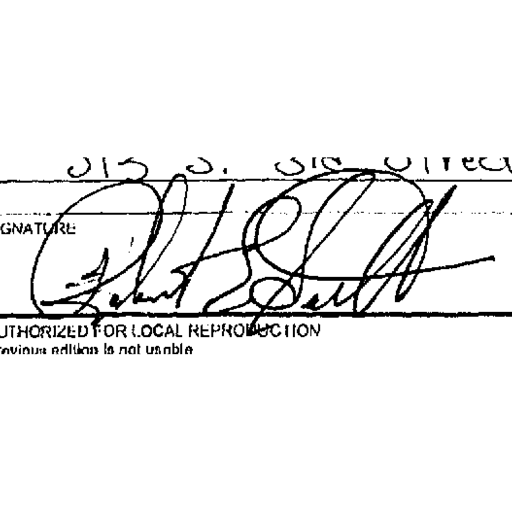 513 S. 3rd Street
GNATURE
Robert E. Scott
UTHORIZED FOR LOCAL REPRODUCTION
revious edition is not usable